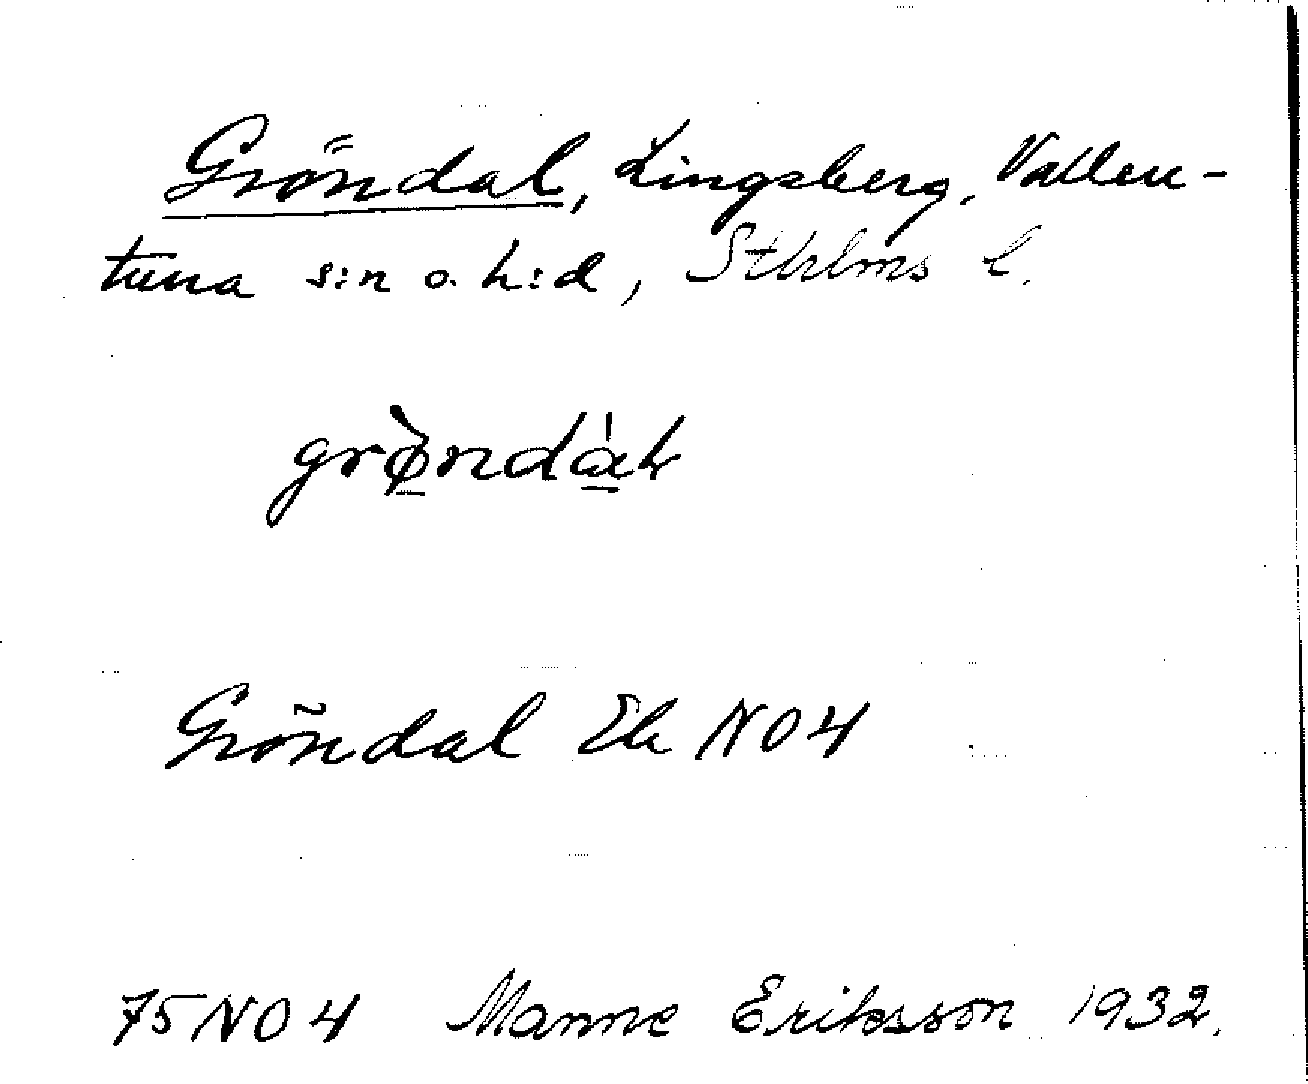 Gröndal, Lingsberg, Vallen-
tuna s:n o. h:d, Sthlms l.
grø̀ndàl
Gröndal Ek NO4
75NO4 Manne Eriksson 1932.